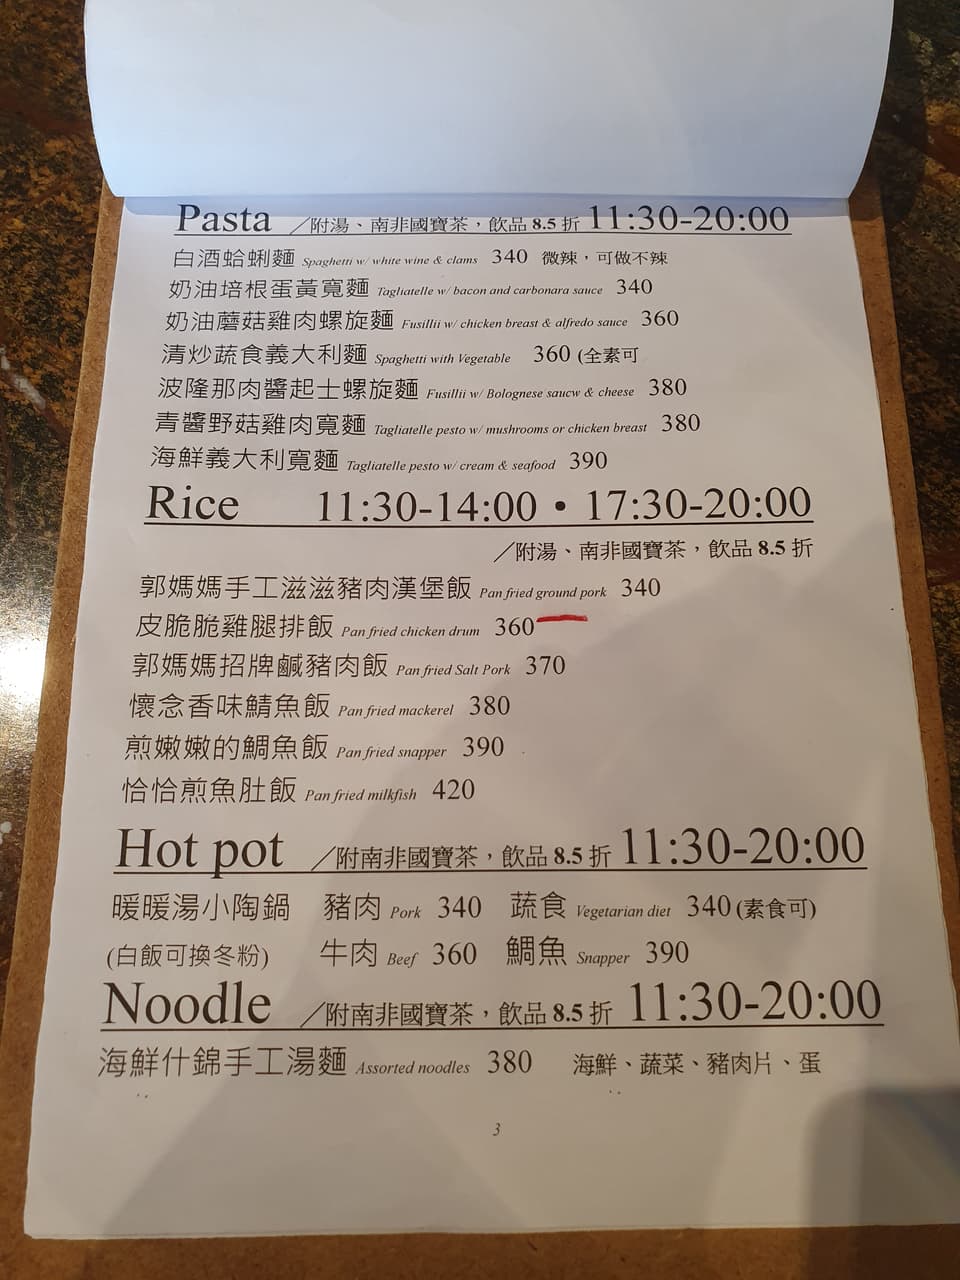 Pasta ／附湯、南非國寶茶，飲品 8.5 折 11:30-20:00
白酒蛤蜊麵 Spaghetti w/ white wine & clams 340 微辣，可做不辣
奶油培根蛋黃寬麵 Tagliatelle w/ bacon and carbonara sauce 340
奶油蘑菇雞肉螺旋麵 Fusillii w/ chicken breast & alfredo sauce 360
清炒蔬食義大利麵 Spaghetti with Vegetable 360 (全素可
波隆那肉醬起士螺旋麵 Fusillii w/ Bolognese saucw & cheese 380
青醬野菇雞肉寬麵 Tagliatelle pesto w/ mushrooms or chicken breast 380
海鮮義大利寬麵 Tagliatelle pesto w/ cream & seafood 390
Rice 11:30-14:00 • 17:30-20:00
／附湯、南非國寶茶，飲品 8.5 折
郭媽媽手工滋滋豬肉漢堡飯 Pan fried ground pork 340
皮脆脆雞腿排飯 Pan fried chicken drum 360
郭媽媽招牌鹹豬肉飯 Pan fried Salt Pork 370
懷念香味鯖魚飯 Pan fried mackerel 380
煎嫩嫩的鯛魚飯 Pan fried snapper 390
恰恰煎魚肚飯 Pan fried milkfish 420
Hot pot ／附南非國寶茶，飲品 8.5 折 11:30-20:00
暖暖湯小陶鍋 豬肉 Pork 340 蔬食 Vegetarian diet 340 (素食可)
(白飯可換冬粉) 牛肉 Beef 360 鯛魚 Snapper 390
Noodle ／附南非國寶茶，飲品 8.5 折 11:30-20:00
海鮮什錦手工湯麵 Assorted noodles 380 海鮮、蔬菜、豬肉片、蛋
3